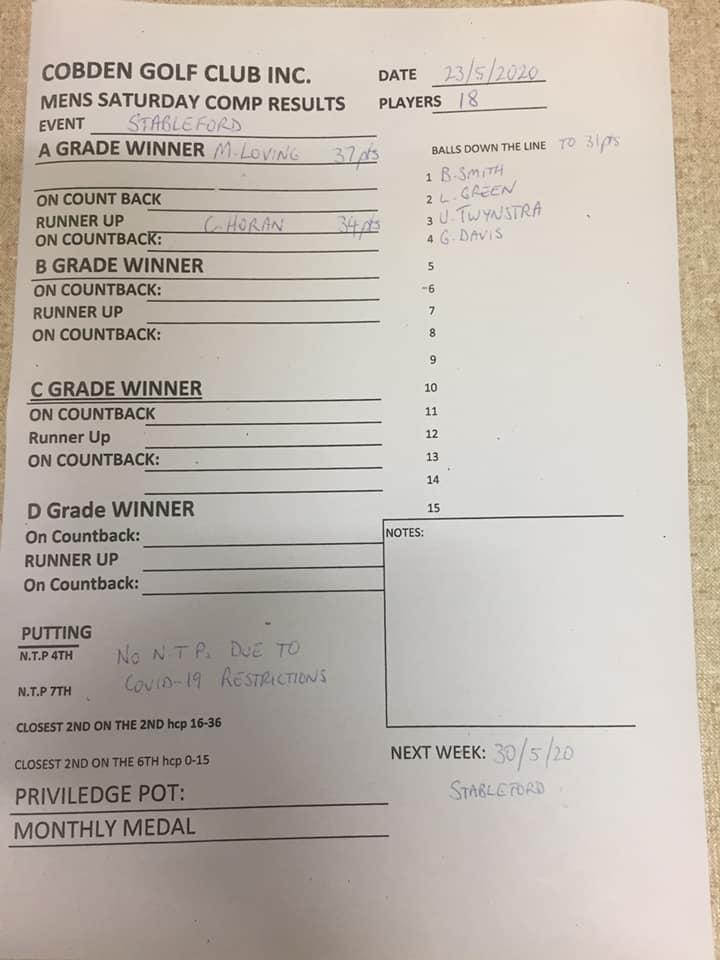 COBDEN GOLF CLUB INC.
DATE 23/5/2020
MENS SATURDAY COMP RESULTS
PLAYERS 18
EVENT STABLEFORD
A GRADE WINNER M. LOVING 37pts
ON COUNT BACK
RUNNER UP C. HORAN 34pts
ON COUNTBACK:
B GRADE WINNER
ON COUNTBACK:
RUNNER UP
ON COUNTBACK:
C GRADE WINNER
ON COUNTBACK
Runner Up
ON COUNTBACK:
D Grade WINNER
On Countback:
RUNNER UP
On Countback:
BALLS DOWN THE LINE TO 31pts
1 B. SMITH
2 L. GREEN
3 U. TWYNSTRA
4 G. DAVIS
5
6
7
8
9
10
11
12
13
14
15
NOTES:
PUTTING
N.T.P 4TH
N.T.P 7TH
NO N.T.P.s DUE TO
COVID-19 RESTRICTIONS
CLOSEST 2ND ON THE 2ND hcp 16-36
CLOSEST 2ND ON THE 6TH hcp 0-15
PRIVILEDGE POT:
MONTHLY MEDAL
NEXT WEEK: 30/5/20
STABLEFORD